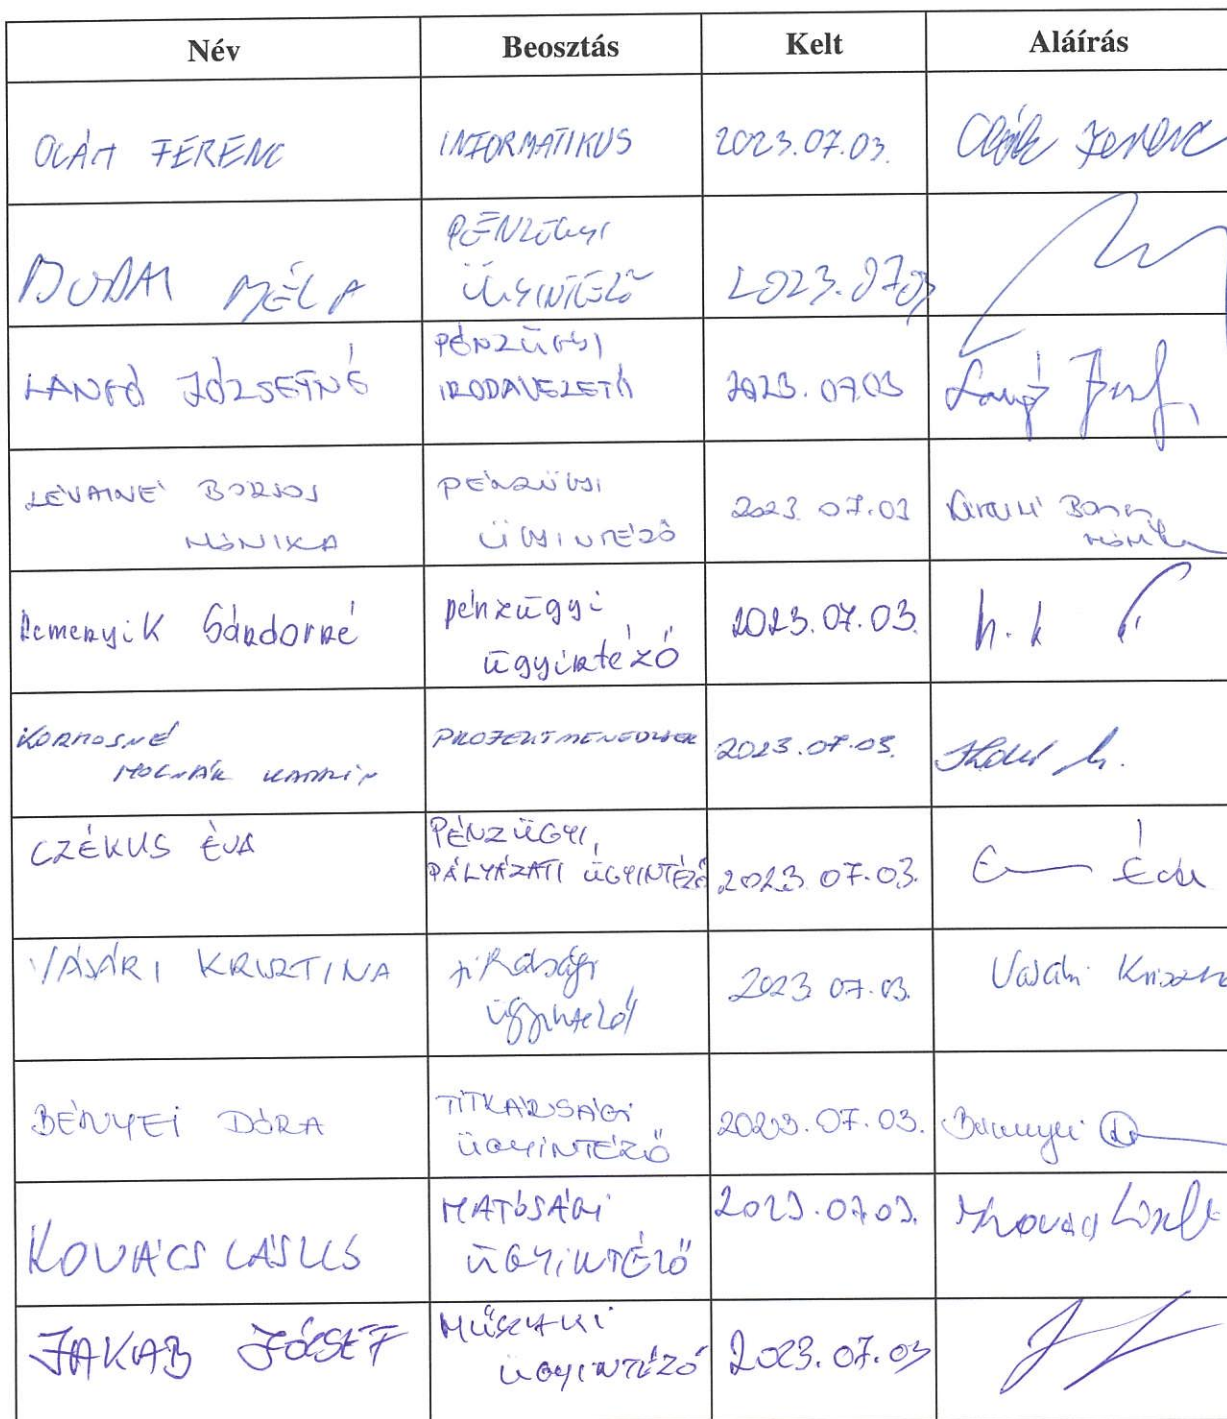 Név Beosztás Kelt Aláírás
OLÁH FERENC INFORMATIKUS 2023.07.03. Oláh Ferenc
BUDAI BÉLA PÉNZÜGYI
ÜGYINTÉZŐ 2023.07.03
LANGÓ JÓZSEFNÉ PÉNZÜGYI
IRODAVEZETŐ 2023.07.03 Langó
LÉVAINÉ BORSOS PÉNZÜGYI
MÓNIKA ÜGYINTÉZŐ 2023.07.03 Lévainé Borsos
Mónika
Remenyik Sándorné pénzügyi
ügyintéző 2023.07.03. h.k
KORMOSNÉ PROJEKTMENEDZSER 2023.07.03.
MOLNÁR KATALIN
CZÉKUS ÉVA PÉNZÜGYI,
PÁLYÁZATI ÜGYINTÉZŐ 2023.07.03. Éva
VÁSÁRI KRISZTINA titkársági
ügyintéző 2023.07.03. Vásári Krisztina
BÉNYEI DÓRA TITKÁRSÁGI
ÜGYINTÉZŐ 2023.07.03. Bényei
KOVÁCS LÁSZLÓ HATÓSÁGI
ÜGYINTÉZŐ 2023.07.03. Kovács László
JAKAB JÓZSEF MŰSZAKI
ÜGYINTÉZŐ 2023.07.03